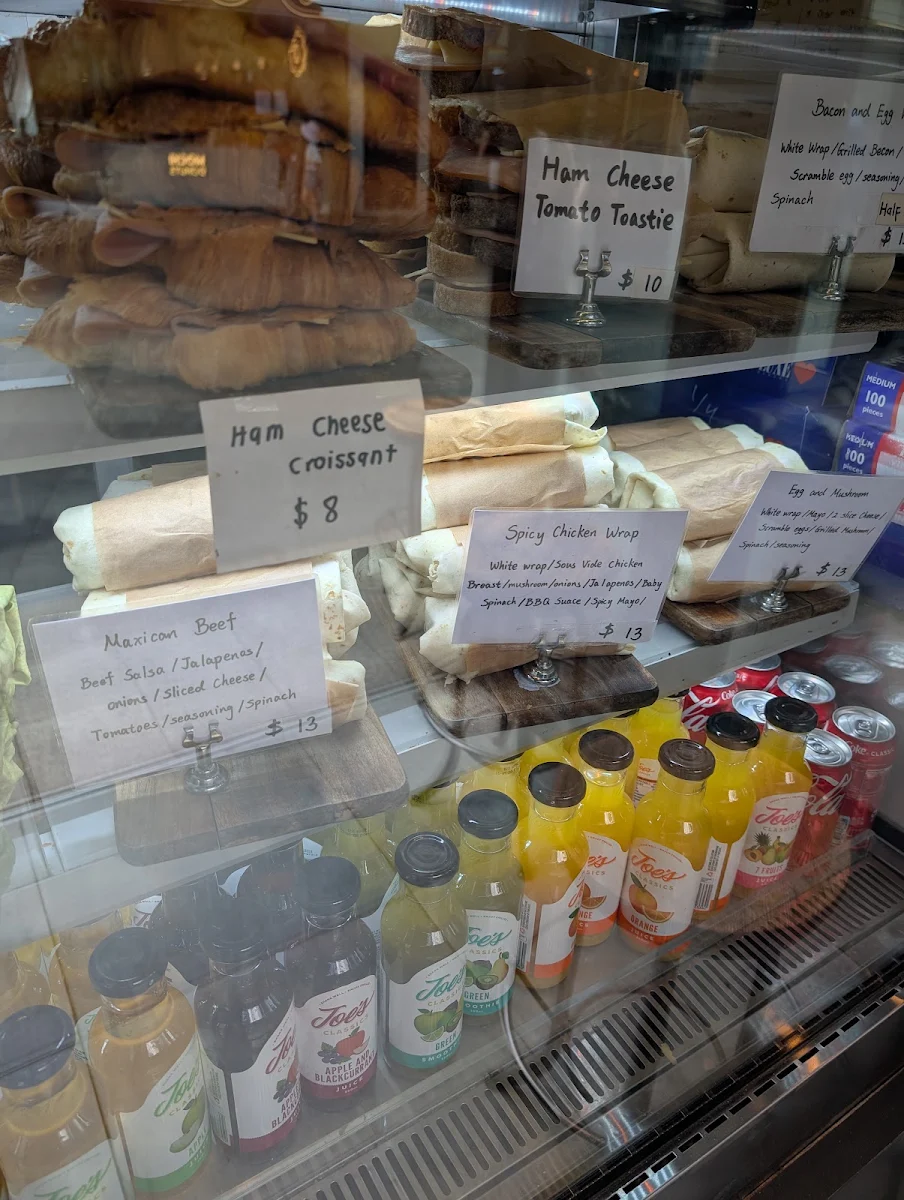 Ham Cheese
Tomato Toastie
$ 10
Bacon and Egg
White Wrap/Grilled Bacon/
Scramble egg/seasoning/
Spinach
Half
$ 1
ROOM
MEDIUM
100
pieces
MEDIUM
100
pieces
Ham Cheese
Croissant
$ 8
Egg and Mushroom
White wrap/Mayo/2 slice Cheese/
Scramble eggs/Grilled Mushroom/
Spinach/seasoning
$ 13
Spicy Chicken Wrap
White wrap/Sous Vide Chicken
Breast/mushroom/onions/Jalapenos/Baby
Spinach/BBQ Suace/Spicy Mayo/
$ 13
Maxican Beef
Beef Salsa/Jalapenos/
onions/Sliced Cheese/
Tomatoes/seasoning/Spinach
$ 13
Joe's
CLASSICS
7 FRUITS
JUICE
Joe's
CLASSICS
ORANGE
JUICE
Joe's
CLASSICS
GREEN
Joe's
CLASSICS
GREEN
Joe's
CLASSICS
APPLE AND
BLACKCURRANT
JUICE
Joe's